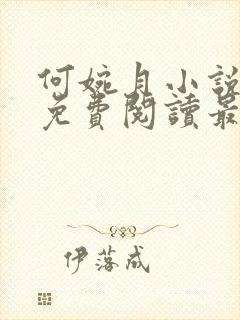 何婉月小説
免費閱讀最
伊落成